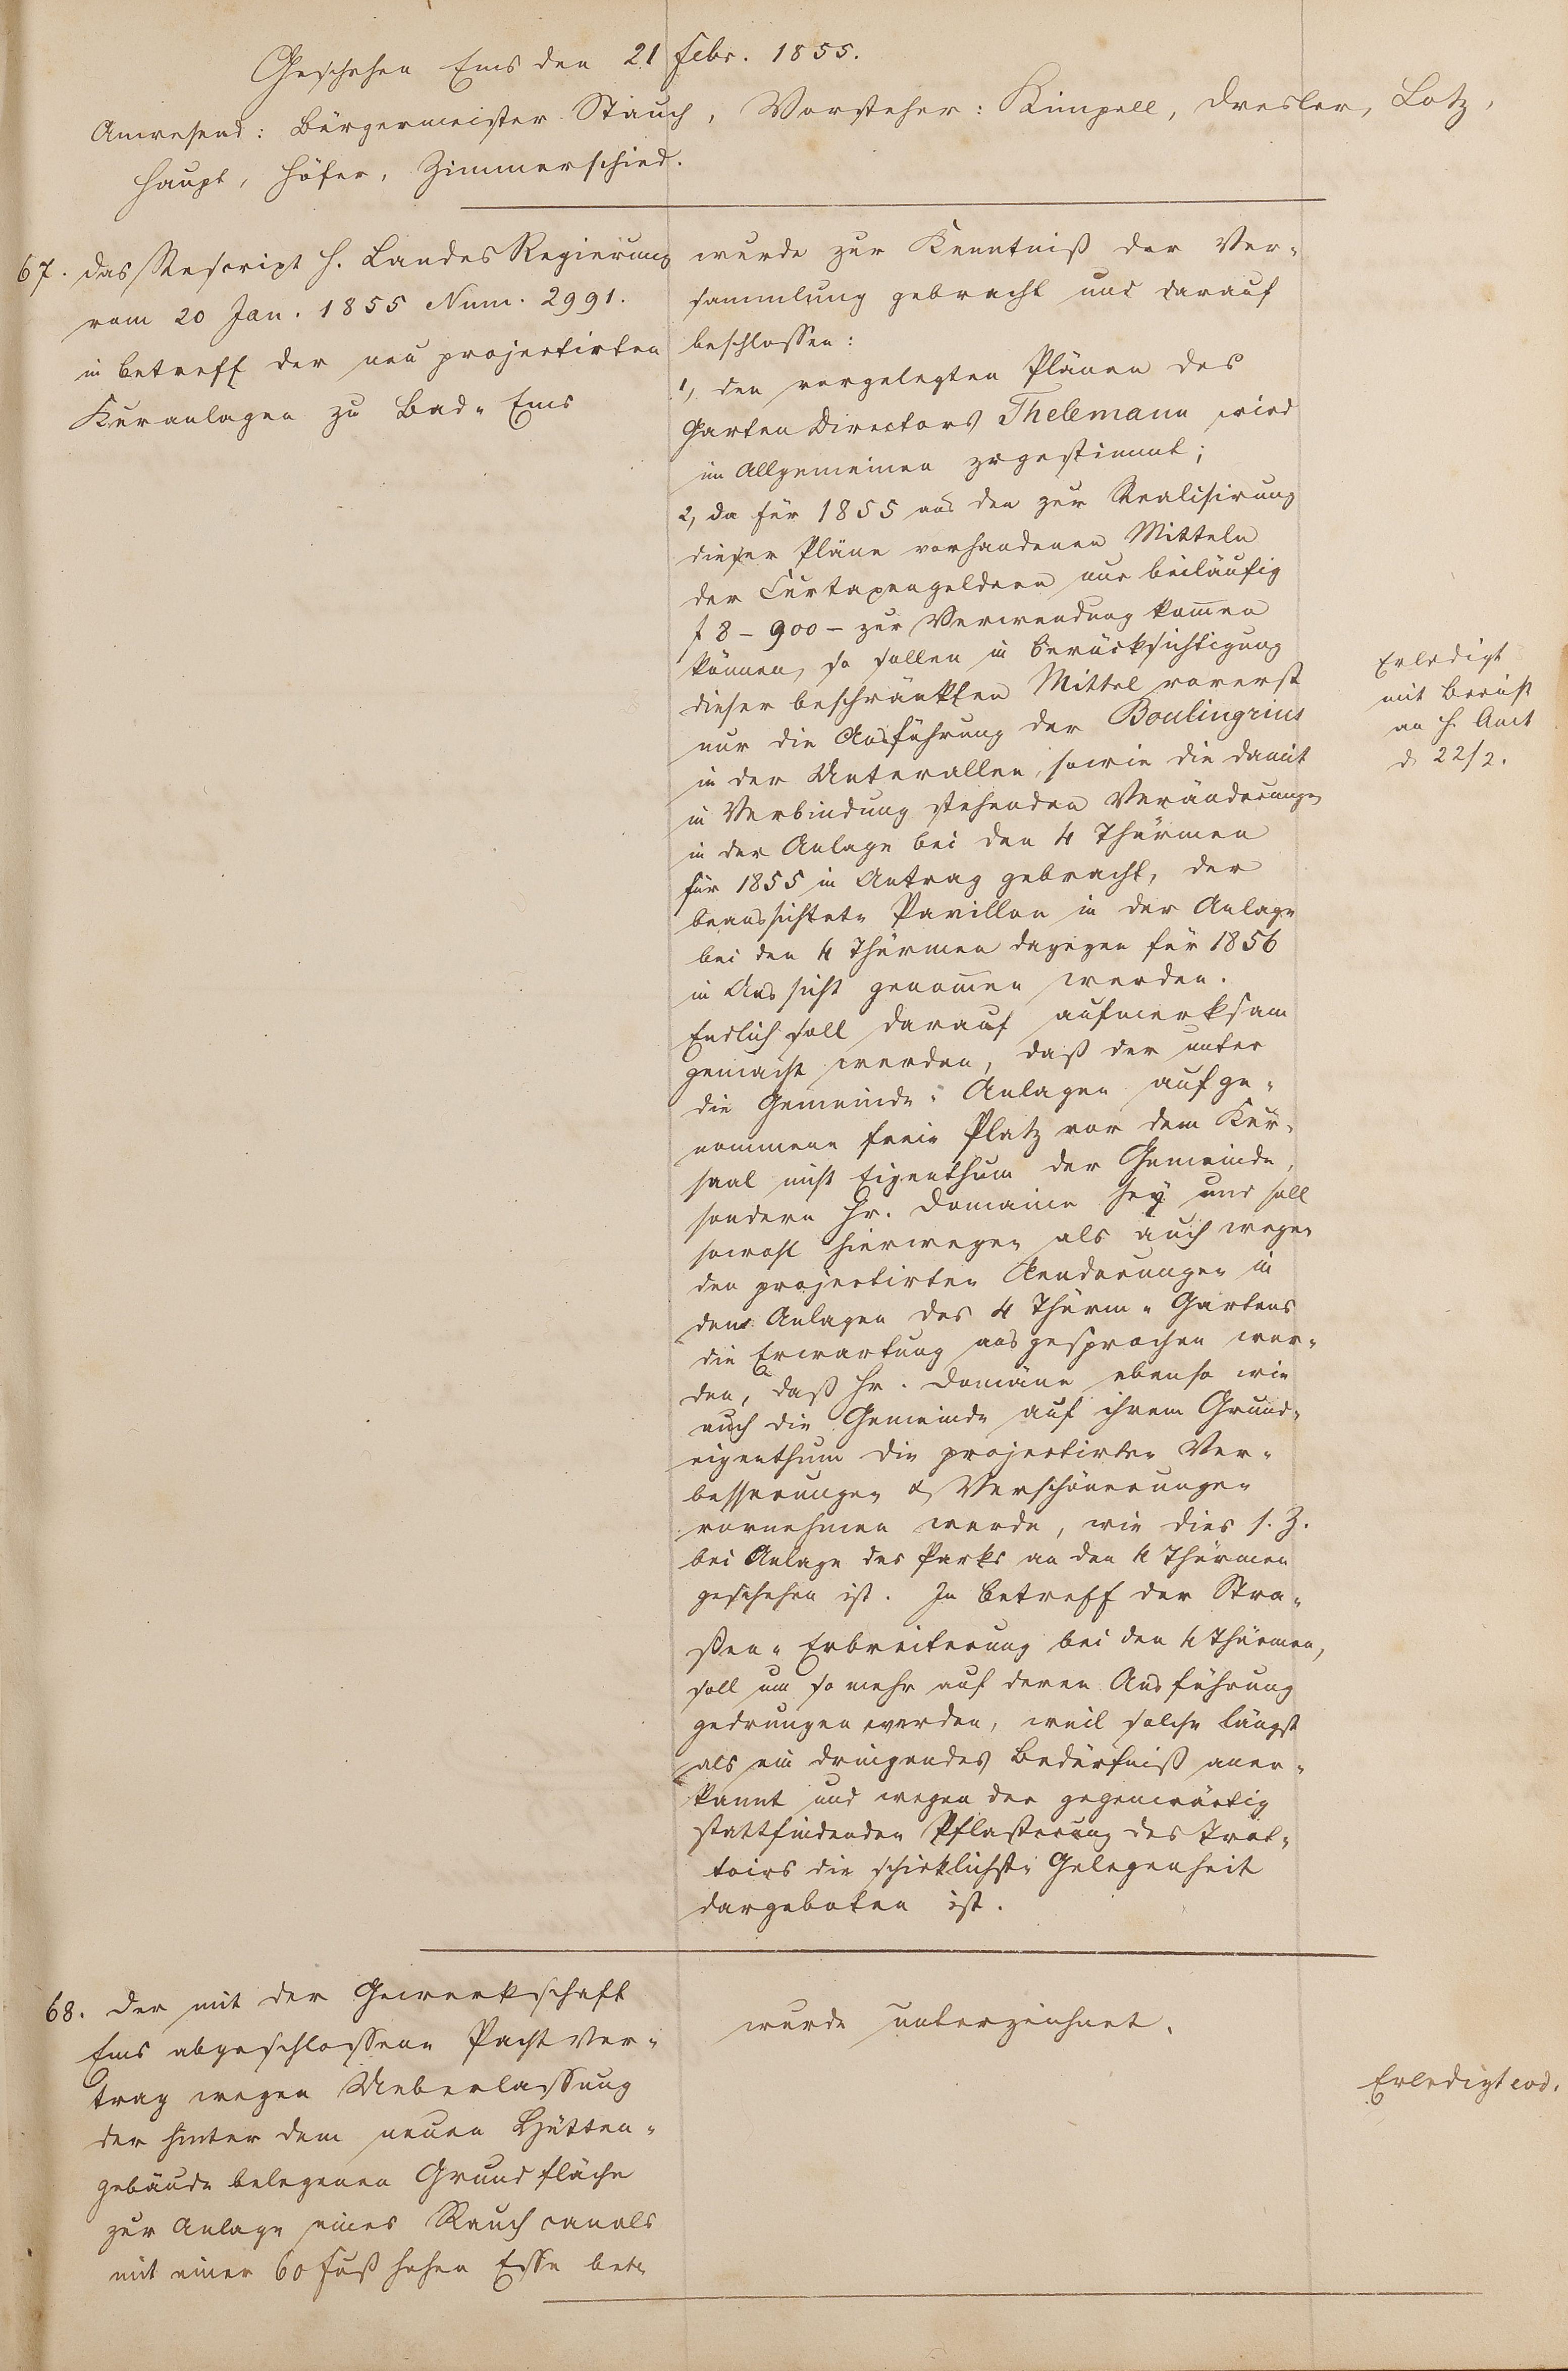 Geschehen Ems den 21 Febr. 1855.
Anwesend: Bürgermeister Stauch, Vorsteher: Kimpell, Dresler, Lotz,
Haupt, Höfer, Zimmerschied.
67. Das Rescript H. Landes Regierung
vom 20 Jan. 1855 Num. 2991.
in Betreff der neu projectirten
Kuranlagen zu Bad-Ems
wurde zur Kenntniß der Ver-
sammlung gebracht und darauf
beschlossen:
1, den vorgelegten Plänen des
Garten Directors Thelemann wird
im Allgemeinen zugestimmt;
2, da für 1855 aus den zur Realisirung
dieser Pläne vorhandenen Mitteln
der Curtaxengeldern nur beiläufig
f 8-900- zur Verwendung kom̅en
können, so sollen in Berücksichtigung
dieser beschränkten Mittel vorerst
nur die Ausführung der Boulingrins
in der Unterallee, sowie die damit
in Verbindung stehenden Veränderungen
in der Anlage bei den 4 Thürmen
für 1855 in Antrag gebracht, der
beaussichtete Pavillon in der Anlage
bei den 4 Thürmen dagegen für 1856
in Aussicht genom̅en werden.
Endlich soll darauf aufmerksam
gemacht werden, daß der unter
die Gemeinde-Anlagen aufge-
nommene freie Platz vor dem Kur-
saal nicht Eigenthum der Gemeinde,
sondern Hr. Domaine sey und soll
sowohl hierwegen als auch wegen
den projectirten Aenderungen in
den Anlagen des 4 Thurm-Gartens
die Erwartung ausgesprochen wer-
den, daß Hr. Domäne ebenso wie
auch die Gemeinde auf ihrem Grund-
eigenthum die projectirten Ver-
besserungen & Verschönerungen
vornehmen werde, wie dies s. Z.
bei Anlage des Parks an den 4 Thürmen
geschehen ist. In Betreff der Stra-
ßen-Erbreiterung bei den 4 Thürmen,
soll um so mehr auf deren Ausführung
gedrungen werden, weil solche längst
als ein dringendes Bedürfniß aner-
kannt und wegen der gegenwärtig
stattfindenden Pflasterung des Trot-
toirs die schicklichste Gelegenheit
dargeboten ist.
Erledigt
mit Bericht
an H. Amt
d. 22/2.
68. Der mit der Gewerkschaft
Ems abgeschlossene Pacht Ver-
trag wegen Ueberlassung
der hinter dem neuen Hütten-
gebäude belegenen Grundfläche
zur Anlage eines Rauchcanals
mit einer 60 Fuß hohen Esse betr.
wurde unterzeichnet.
Erledigt eod.